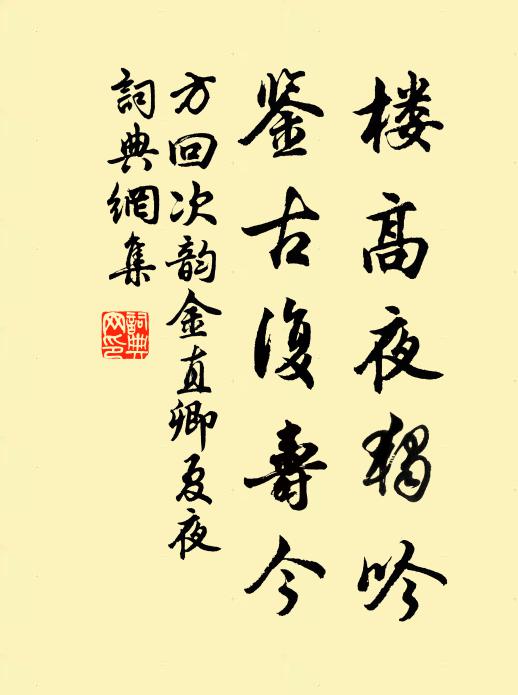 楼高夜独吟
鉴古复寿今
方回次韵金直卿夏夜
词典網集
詞典网印